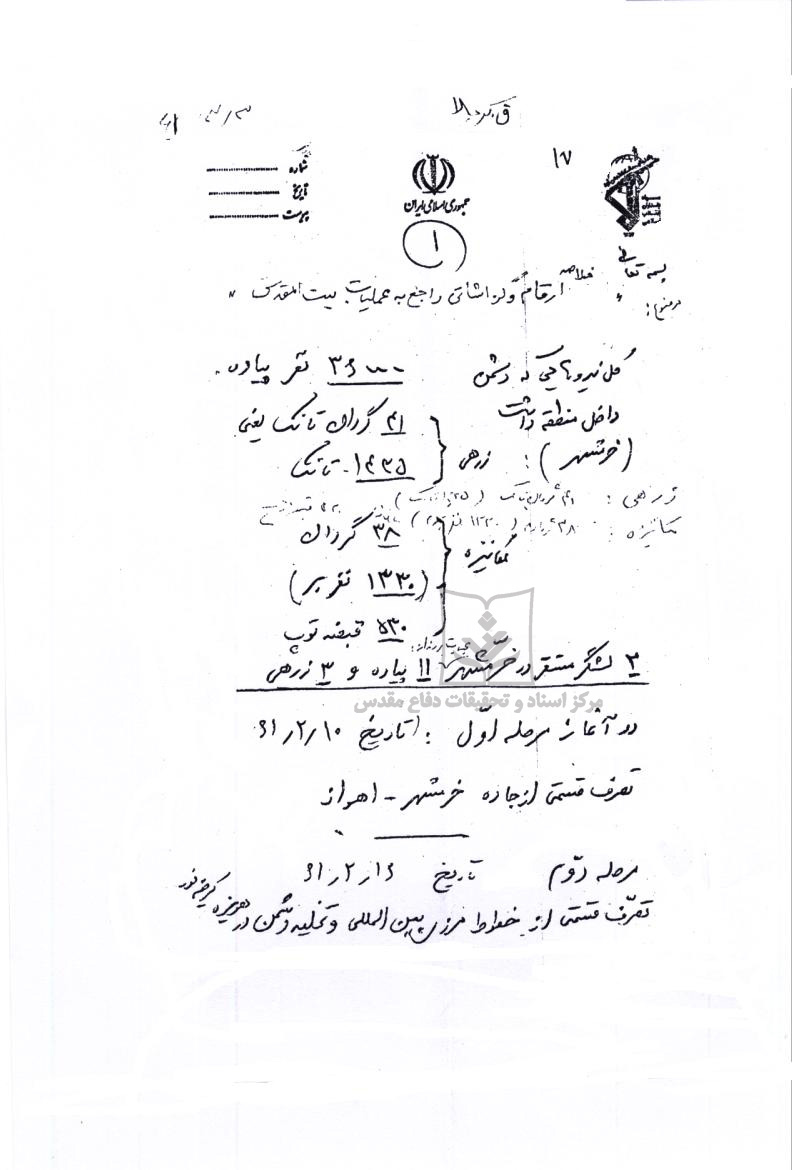 ق کربلا
۱۷
شماره
تاریخ
پیوست
جمهوری اسلامی ایران
۱
بسمه تعالی
موضوع: خلاصه ارقام و گزارشاتی راجع به عملیات بیت المقدس "
کل نیروهایی که دشمن ۳۶۰۰۰ نفر پیاده.
داخل منطقه داشت
(خرمشهر): زرهی ۴۱ گردان تانک یعنی
۱۴۳۵ - تانک
زرهی: ۴۱ گردان تانک
مکانیزه: ۳۸ گردان ( ۱۳۳۰ نفربر )
مکانیزه ۳۸ گردان
(۱۳۳۰ نفر بر)
۵۳۰ قبضه توپ
۳ لشگر مستقر در خرمشهر ۱۱ پیاده و ۳ زرهی
مرکز اسناد و تحقیقات دفاع مقدس
در آغاز مرحله اول : (تاریخ ۶۱/۲/۱۰
تصرف قسمتی از جاده خرمشهر - اهواز
مرحله دوم تاریخ ۶۱/۲/۱۶
تصرف قسمتی از خطوط مرزی بین المللی و تخلیه دشمن در هویزه کرخه نور